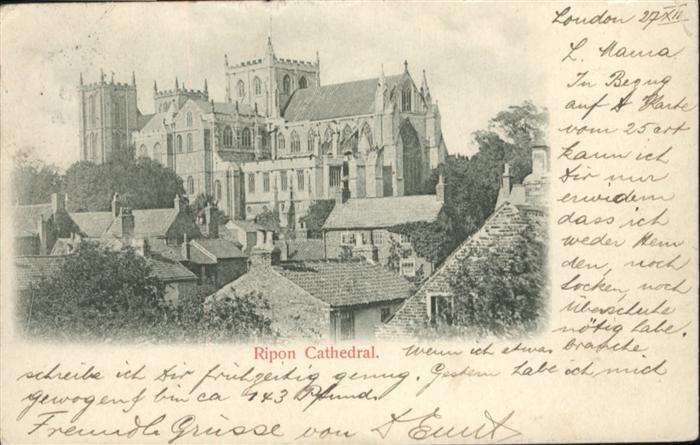 London 27/XII
L. Mama
In Bezug
auf d Karte
vom 25 art
kann ich
Dir nur
erwidern
dass ich
weder Hem
den, noch
Socken, noch
Überschuhe
nötig habe.
Ripon Cathedral.
Wenn ich etwas brauche
schreibe ich Dir frühzeitig genug. Gestern habe ich mich
gewogen & bin ca 143 Pfund.
Freundl. Grüsse von D Ernst